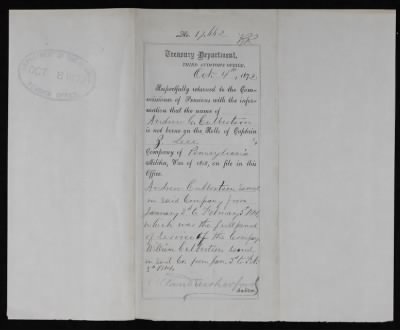 No. 1,662
Treasury Department,
THIRD AUDITOR'S OFFICE,
Oct. 4th, 1872.
Respectfully returned to the Com-
missioner of Pensions with the infor-
mation that the name of
Andrew C. Culbertson
is not borne on the Rolls of Captain
Company of Pennsylvania
Militia, War of 1812, on file in this
Office.
Andrew Culbertson served
in said Company from
January 2d to February 1814,
which was the full period
of service of the Company
William Culbertson served
in said Co. from Jan. 2d to Feb.
1814.
Auditor.
OCT 8 1872